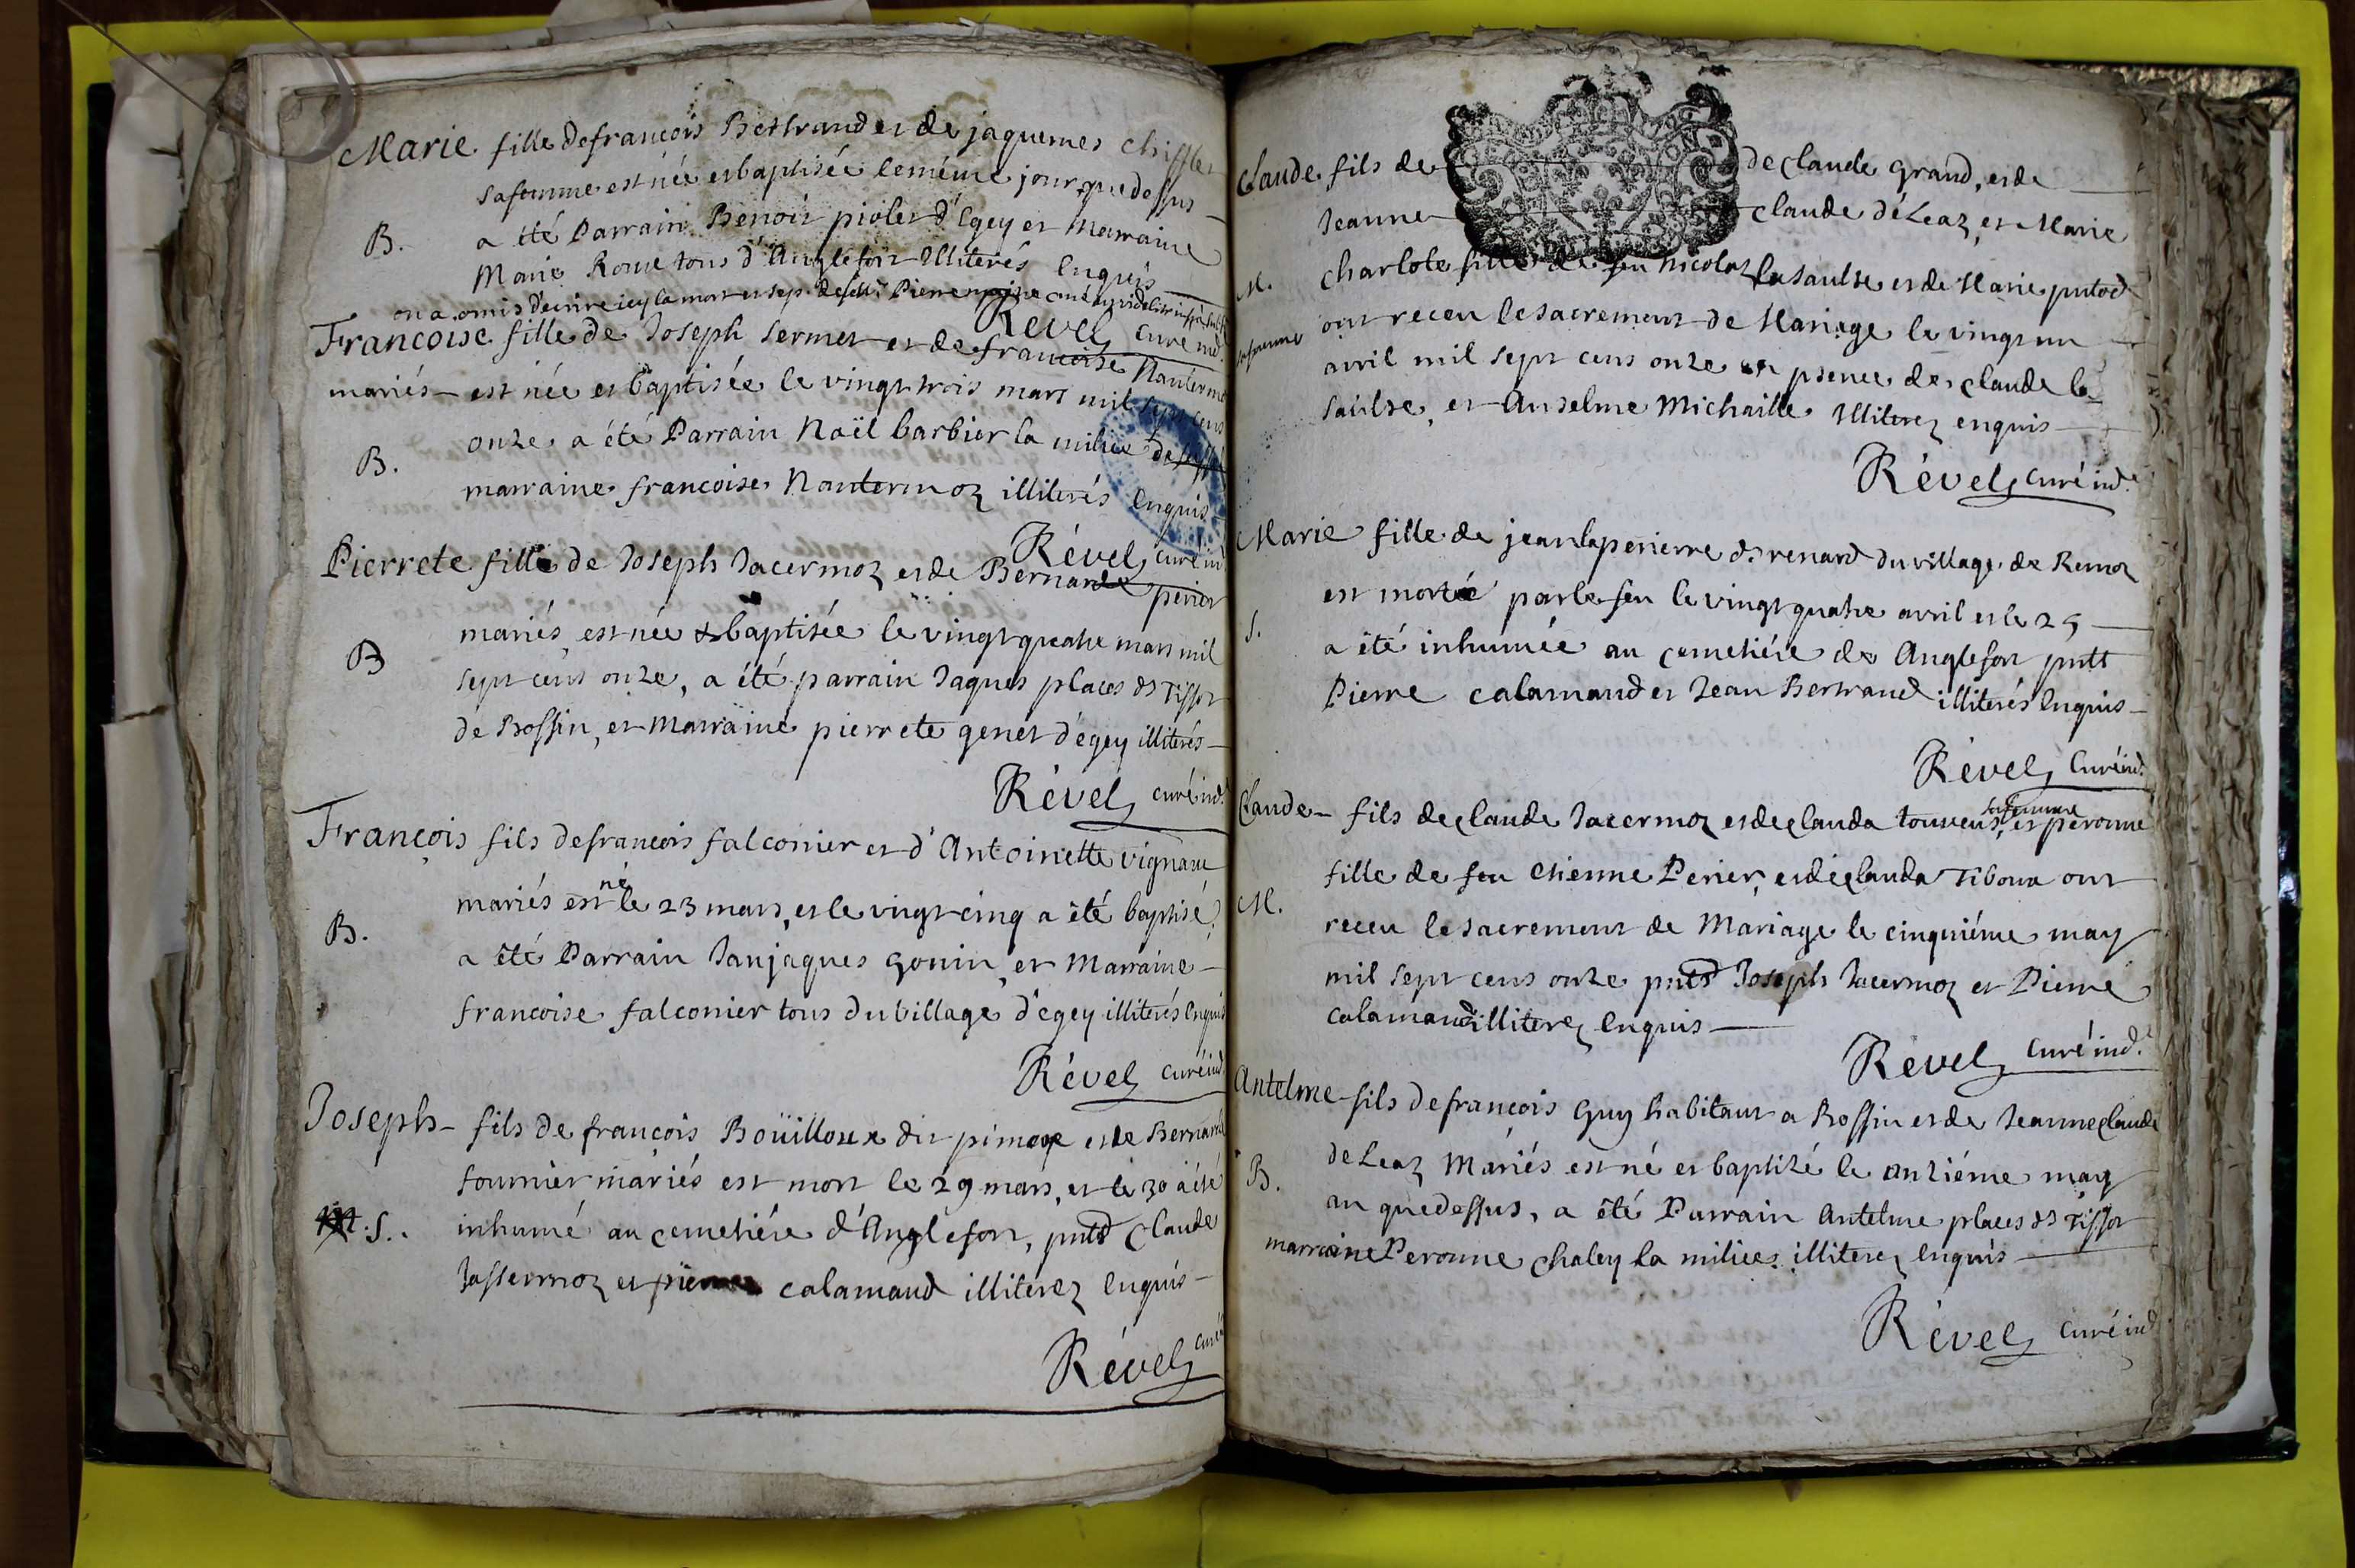 Marie fille de françois Bertrand et de jaquemes Chifflet
sa femme est née et baptisée le même jour que dessus
B. a été Parrain Benoit piolet d'Egey et Marraine
Marie Roue tous d'Anglefort Illiterés Enquis
on a omis d'écrire icy la mort et sep. de
Revel curé ind.
Francoise fille de Joseph Sermet et de francoise Nantermo
mariés est née et baptisée le vingt trois mars mil sept cens
B. onze a été Parrain Noël barbier la milice
marraine francoise Nantermoz illiterés Enquis
Révél curé ind.
Pierrete fille de Joseph Jacermoz et de Bernarde perier
mariés est née & baptisée le vingt quatre mars mil
B sept cens onze, a été parrain Jaques places ds Tissot
de Bossin, et Marraine pierrete genet d'égey illiterés
Révél curé ind.
François fils de francois falconier et d'Antoinette vignaue
mariés est né le 23 mars, et le vingt cinq a été baptisé
B. a été Parrain Janjaques Gonin, et Marraine
francoise falconier tous du village d'égey illiterés Enquis
Révél curé ind.
Joseph fils de françois Boüilloux dit pimoxe et de Bernarde
fournier mariés est mort le 29 mars, et le 30 a été
M. S. inhumé au cemetiére d'Anglefort, pntd Claude
Jassermoz et pierre calamaud illiterez Enquis
Révél curé
Claude fils de de Claude Grand, et de
Jeanne Claude déLeaz, et Marie
M. Charlote fille de feu Nicolaz la saulse et de Marie
sa femme ont receu le sacrement de Mariage le vingt un
avril mil sept cens onze en psence de Claude la
saulse, et Anselme Michaille Illiterez enquis
Révél curé ind.
Marie fille de jean laperierre ds renard du village de Remoz
est mortée par le feu le vingt quatre avril et le 25
S. a été inhumée au cemetiére de Anglefort pntt
Pierre calamaud et Jean Bertrand illiterés Enquis
Révél Curé ind.
sa femme
Claude fils de Claude Jacermoz et de Clauda touvens, et péronne
fille de feu Etienne Perier, et de Clauda Tiboux ont
M. receu le sacrement de Mariage le cinquiéme may
mil sept cens onze pntd Joseph Jacermoz et Pierre
calamaud illiterez Enquis
Révél Curé ind.
Antelme fils de françois Guy habitant a Bossin et de Jeanne Claude
de Leaz Mariés est né et baptizé le onziéme may
B. an que dessus, a été Parrain Antelme places ds Tissot
marraine Peronne Chaley la milice illiterez Enquis
Révél Curé ind